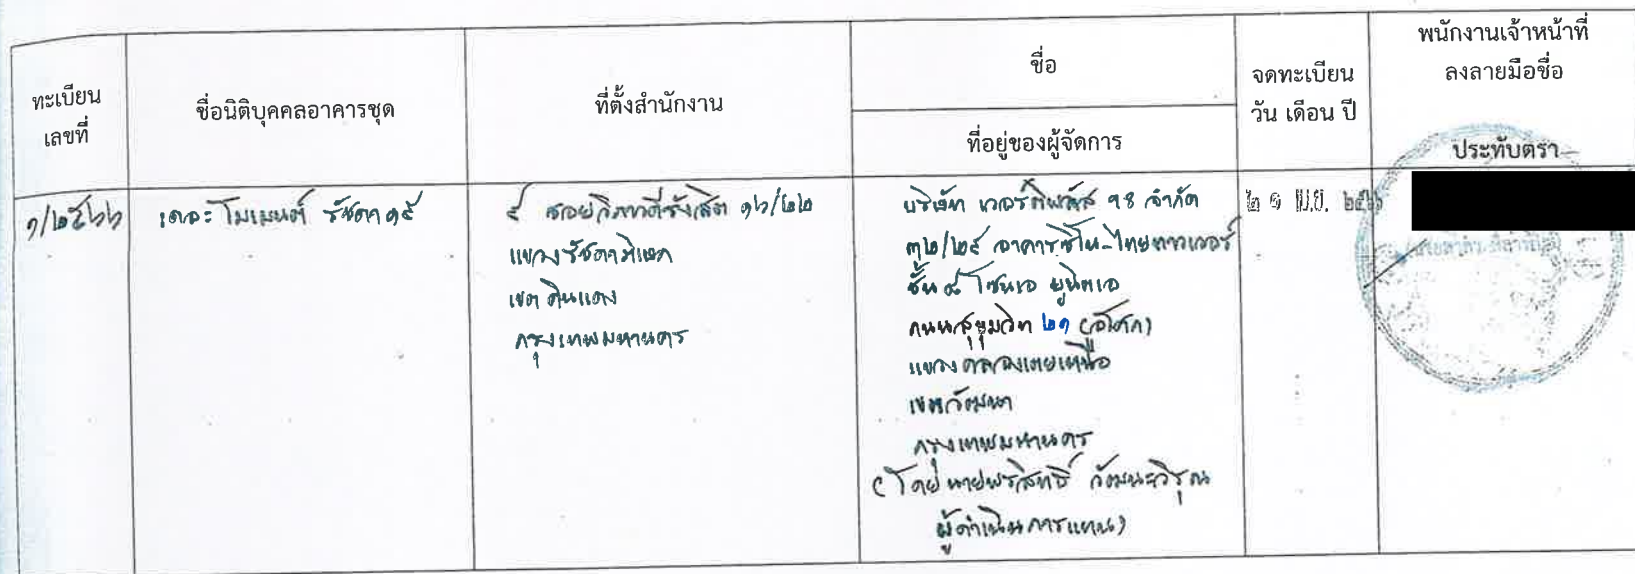 ทะเบียน
เลขที่
ชื่อนิติบุคคลอาคารชุด
ที่ตั้งสำนักงาน
ชื่อ
ที่อยู่ของผู้จัดการ
จดทะเบียน
วัน เดือน ปี
พนักงานเจ้าหน้าที่
ลงลายมือชื่อ
ประทับตรา
๑/๒๕๖๖
เดอะ โมเมนต์ รัชดา ๑๙
๙ ซอยวิภาวดีรังสิต ๑๖/๒๒
แขวงรัชดาภิเษก
เขตดินแดง
กรุงเทพมหานคร
บริษัท เวอร์ติพลัส ๑๘ จำกัด
๓๒/๒๙ อาคารซิโน-ไทยทาวเวอร์
ชั้น ๙ โซนเอ ยูนิตเอ
ถนนสุขุมวิท ๒๑ (อโศก)
แขวงคลองเตยเหนือ
เขตวัฒนา
กรุงเทพมหานคร
(โดย นายพรสิทธิ์
ผู้ดำเนินการแทน)
๒๑ เม.ย. ๒๕๖๖